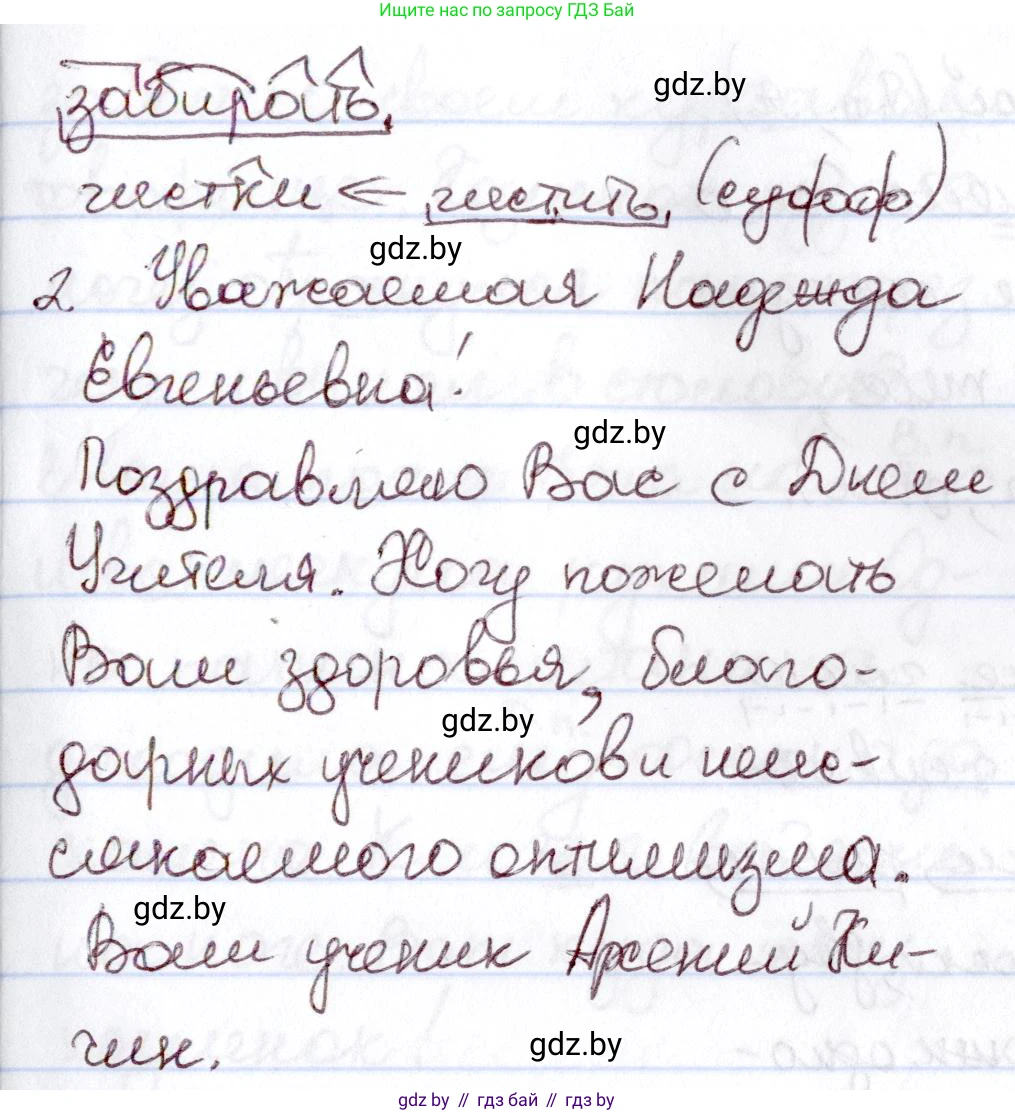 Ищите нас по запросу ГДЗ Бай
забирать.
gdz.by
чистки ← чистить (суфф)
gdz.by
2. Уважаемая Надежда
Евгеньевна!
gdz.by
Поздравляю Вас с Днем
Учителя. Хочу пожелать
Вам здоровья, благо-
gdz.by
дарных учеников и неис-
сякаемого оптимизма.
gdz.by
Ваш ученик Арсений Ки-
чин.
gdz.by
gdz.by // гдз бай // gdz by